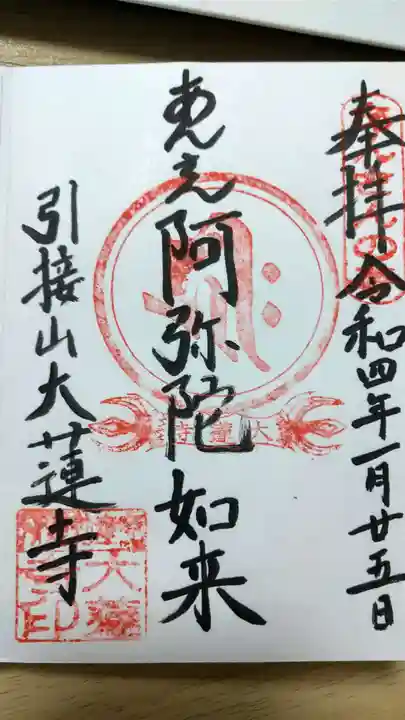 奉拝
令和四年一月廿五日
阿弥陀如来
引接山大蓮寺
大蓮寺